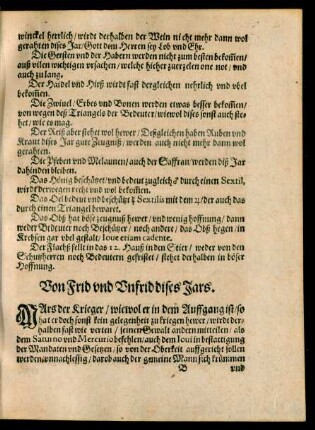 winckel herrlich / wirdt derhalben der Wein nicht mehr dann wol
gerahten dises Jar / Gott dem Herren sey Lob vnd Ehr.
Die Gersten vnd der Habern werden nicht zum besten bekom̃en /
auß vilen wichtigen vrsachen / welche hieher zuerzelen one not / vnd
auch zu lang.
Der Haidel vnd Hirß wirdt fast dergleichen nehrlich vnd vbel
bekom̃en.
Die Zwiuel / Erbes vnd Bonen werden etwas besser bekom̃en /
von wegen deß Triangels der Bedeuter / wiewol dises sonst auch ste-
het / wie es mag.
Der Reiß aber stehet wol hewer / Deßgleichen haben Ruben vnd
Kraut dises Jar gute Zeugnuß / werden auch nicht mehr dann wol
gerahten.
Die Pfeben vnd Melaunen / auch der Saffran werden diß Jar
dahinden bleiben.
Das Hönig beschützet / vnd bedeut zugleich durch einen Sextil,
wirdt derwegen recht vnd wol bekom̃en.
Das Oel bedeut vnd beschützt ♃ Sextilis mit dem ♃ / der auch das
durch einen Triangel bewaret.
Das Obs hat böse zeugnuß hewer / vnd wenig hoffnung / dann
weder Bedeuter noch Beschützer / noch andere / das Obß hegen / in
Krebsen gar vbel gestalt / Ioue etiam cadente.
Der Flachß fellt in das 12. Hauß in den Stier / weder von den
Schutzherren noch Bedeutern gefristet / stehet derhalben in böser
Hoffnung.
Von Frid vnd Vnfrid dises Jars.
MArs der Krieger / wiewol er in dem Auffgang ist / so
hat er doch sonst kein gelegenheit zu kriegen hewer / wirdt der-
halben fast wie verien / seinen Gewalt andern mitteilen / als
dem Saturno vnd Mercurio befehlen / auch dem Ioui in bestattigung
der Mandaten vnd Gesetzen / so von der Oberkeit auffgericht sollen
werden / vnnachlessig / darob auch der gemeine Mann sich krümmen
B vnd